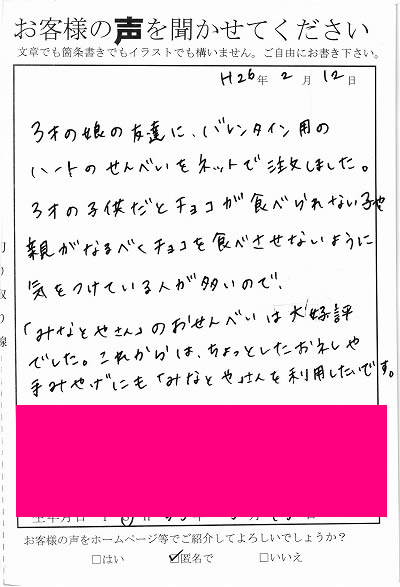 お客様の声を聞かせてください
文章でも箇条書きでもイラストでも構いません。ご自由にお書き下さい。
H26年 2月 12日
3才の娘の友達に、バレンタイン用の
ハートのせんべいをネットで注文しました。
3才の子供だとチョコが食べられない子や
親がなるべくチョコを食べさせないように
気をつけている人が多いので、
「みなとやさん」のおせんべいは大好評
でした。これからは、ちょっとしたお礼や
手みやげにも「みなとや」さんを利用したいです。
り取り線
お客様の声をホームページ等でご紹介してよろしいでしょうか？
□はい ☑匿名で □いいえ